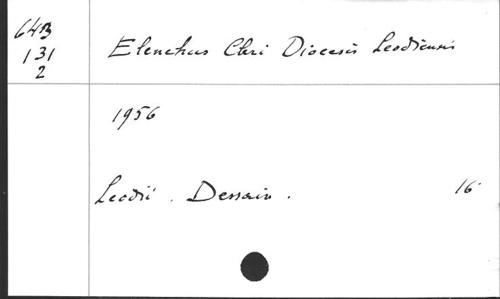 643
131
2
Elenchus Cleri Diocesis Leodiensis
1956
Leodii . Dessain .
16°